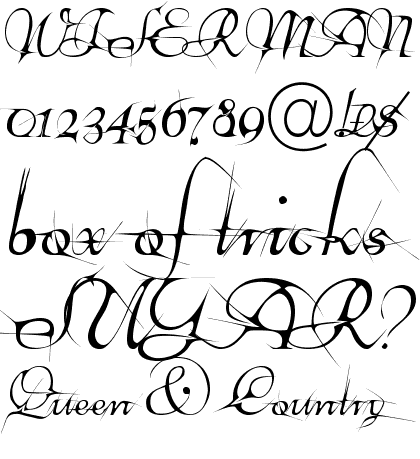 WISER MAN
0123456789@£$
box of tricks
SUGAR?
Queen & Country